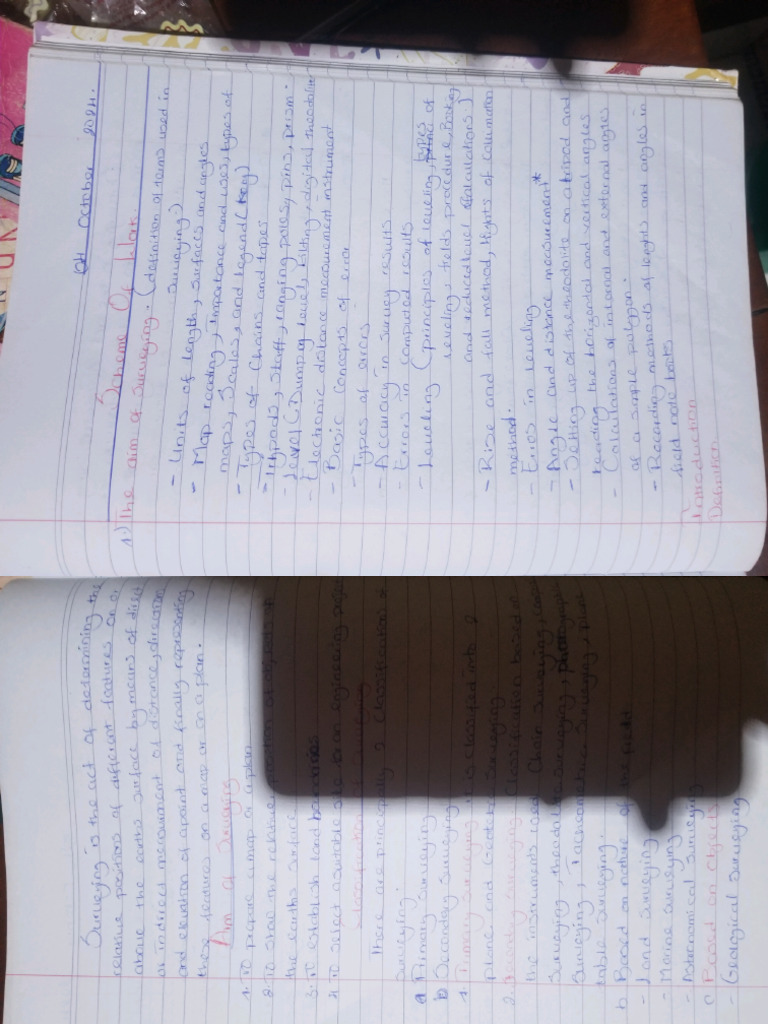 October 2024.
Scheme Of Work
1.) The aim of surveying. (definition of terms used in
surveying.)
- Units of length, surfaces and angles
- Map reading, Importance and uses, types of
maps, Scales, and legend (key)
- Types of Chains and tapes
- Tripods, Staff, ranging poles, pins, prism.
- Level (Dumpy level, tilting, digital theodolite
- Electronic distance measurement instrument
- Basic Concepts of error
- Types of errors
- Accuracy in Survey results
- Errors in computed results
- Leveling (principles of leveling, types of
leveling, fields procedure, Booking
and reduced level Calculations.)
- Rise and fall method, hights of colimation
method.
- Erros in leveling
- Angle and distance measurement*
- Setting up of the theodolite on a tripod and
reading the horizontal and vertical angles
- Calculations of internal and external angles
of a simple polygon.
- Recording methods of lengths and angles in
field note books
Introduction
Definition
Surveying is the act of determining the
relative positions of different features on or
above the earths surface by means of direct
or indirect measurement of distance, direction
and elevation of a point and finally representing
these features on a map or on a plan.
Aim of Surveying
1. To prepare a map or a plan
2. To show the relative position of objects on
the earths surface
3. To establish land boundaries
4. To select a suitable site for an engineering
Classification of Surveying
There are principally 2 classifications of
Surveying.
a Primary Surveying
b Secondary Surveying
1. Primary Surveying: It is classified into 2
plane and Geodetic Surveying.
2. Secondary Surveying: Classification based on
the instruments used. Chain Surveying,
Surveying, theodolite surveying,
Surveying, Tacheometric Surveying, plane
table Surveying.
b Based on nature of the field
- Land Surveying
- Marine Surveying
- Astronomical Surveying
c Based on Objects
- Geological Surveying